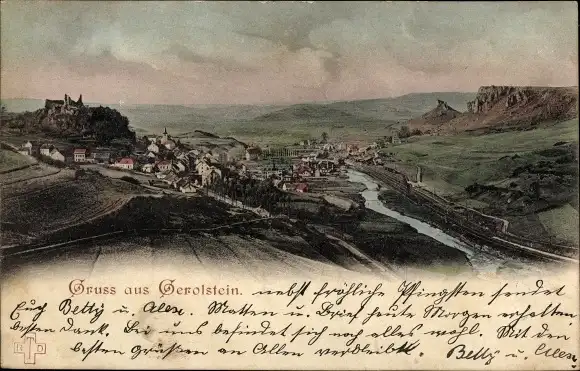 Gruss aus Gerolstein. nebst fröhliche Pfingsten sendet
Euch Betty u. Alex. Matten u. Brief heute Morgen erhalten
besten Dank. Bei uns befindet sich noch alles wohl. Mit den
besten Grüßen an Allen verbleibt Betty u. Alex.